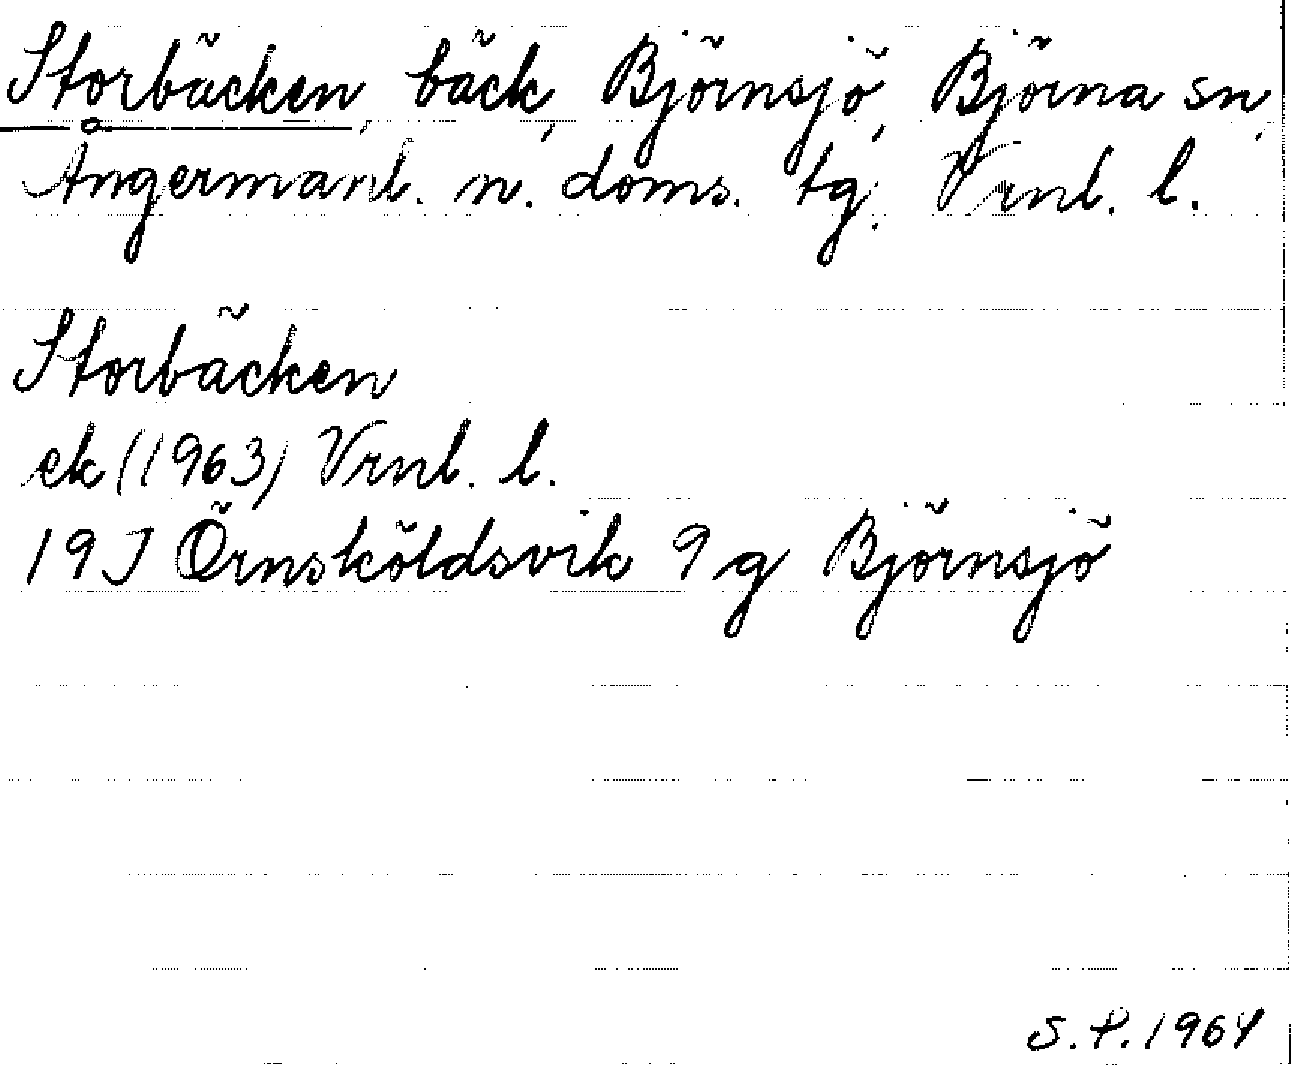 Storbäcken, bäck, Björnsjö, Björna sn,
Ångermanl. n. doms. tg. Vrnl. l.
Storbäcken
ek (1963) Vrnl. l.
19J Örnsköldsvik 9 g Björnsjö
S.P. 1964